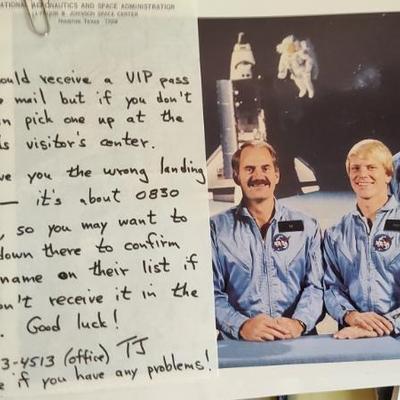 NATIONAL AERONAUTICS AND SPACE ADMINISTRATION
LYNDON B. JOHNSON SPACE CENTER
HOUSTON, TEXAS 77058
ould receive a VIP pass
mail but if you don't
n pick one up at the
visitor's center.
ve you the wrong landing
— it's about 0830
, so you may want to
down there to confirm
name on their list if
on't receive it in the
. Good luck!
TJ
3-4513 (office)
e if you have any problems!
NASA
NASA